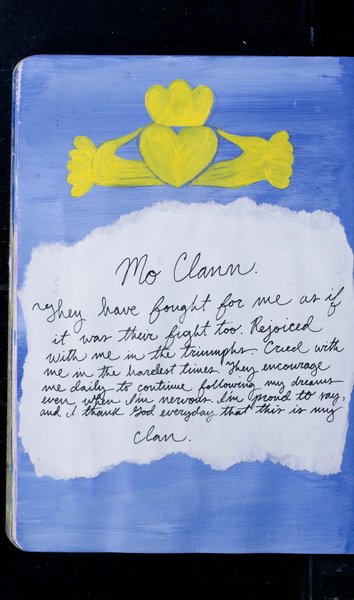 Mo Clann.
They have fought for me as if
it was their fight too. Rejoiced
with me in the triumphs. Cried with
me in the hardest times. They encourage
me daily to continue following my dreams
even when I'm nervous. I'm proud to say,
and I thank God everyday that this is my
clan.